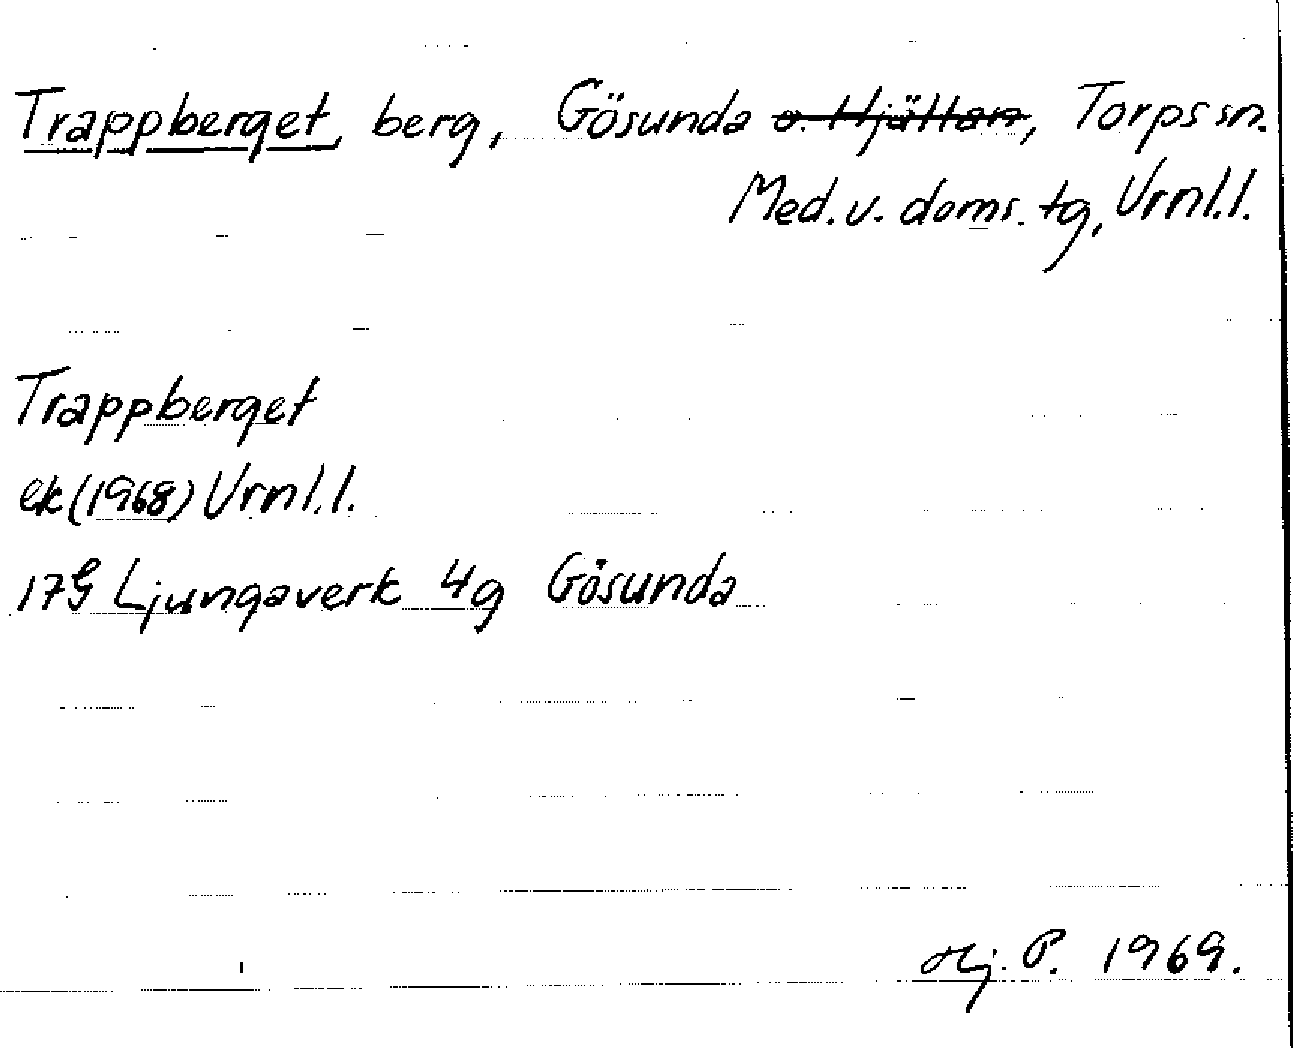 Trappberget, berg, Gösunda o. Hjältan, Torps sn.
Med. v. doms. tg, Vrnl.l.
Trappberget
ek (1968) Vrnl.l.
17G Ljungaverk 4g Gösunda
Hj. P. 1969.